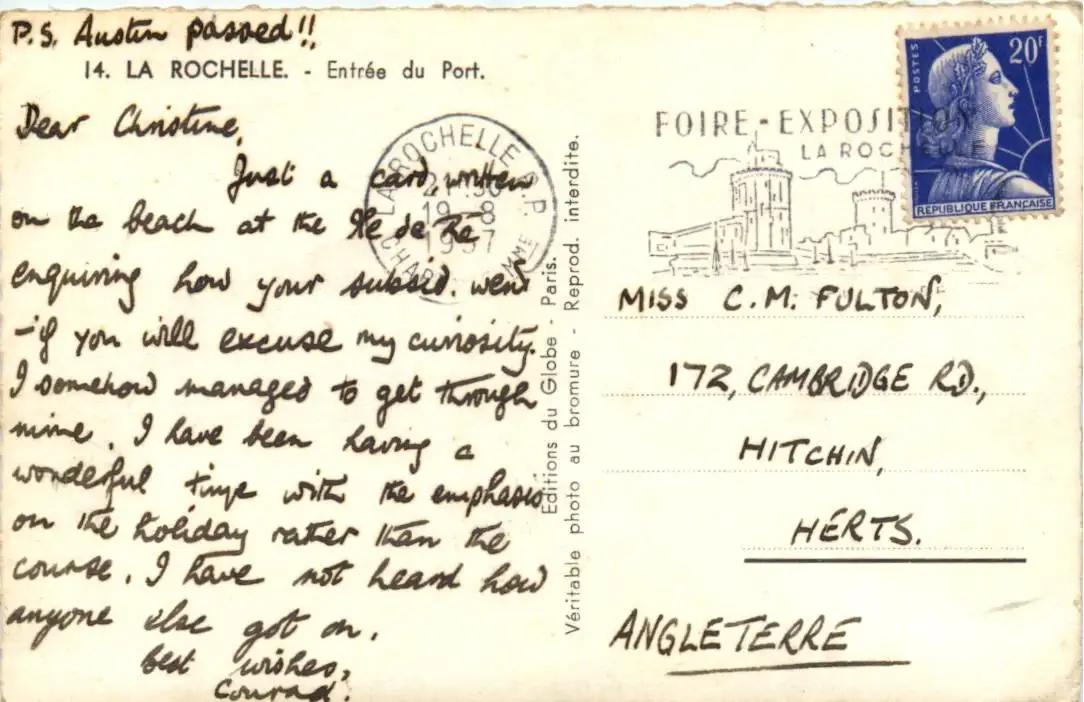 P.S. Austin passed!!
14. LA ROCHELLE. - Entrée du Port.
Dear Christine,
Just a card, written
on the beach at the Ile de Ré
enquiring how your subsid. went
- if you will excuse my curiosity.
I somehow managed to get through
mine. I have been having a
wonderful time with the emphasis
on the holiday rather than the
course. I have not heard how
anyone else got on.
Best wishes,
Conrad.
LA ROCHELLE R.P.
19 - 8
1957
Editions du Globe - Paris.
Véritable photo au bromure - Reprod. interdite.
FOIRE - EXPOSITION
LA ROCHELLE
POSTES
20F
REPUBLIQUE FRANÇAISE
MISS C.M. FULTON,
172, CAMBRIDGE RD.,
HITCHIN,
HERTS.
ANGLETERRE